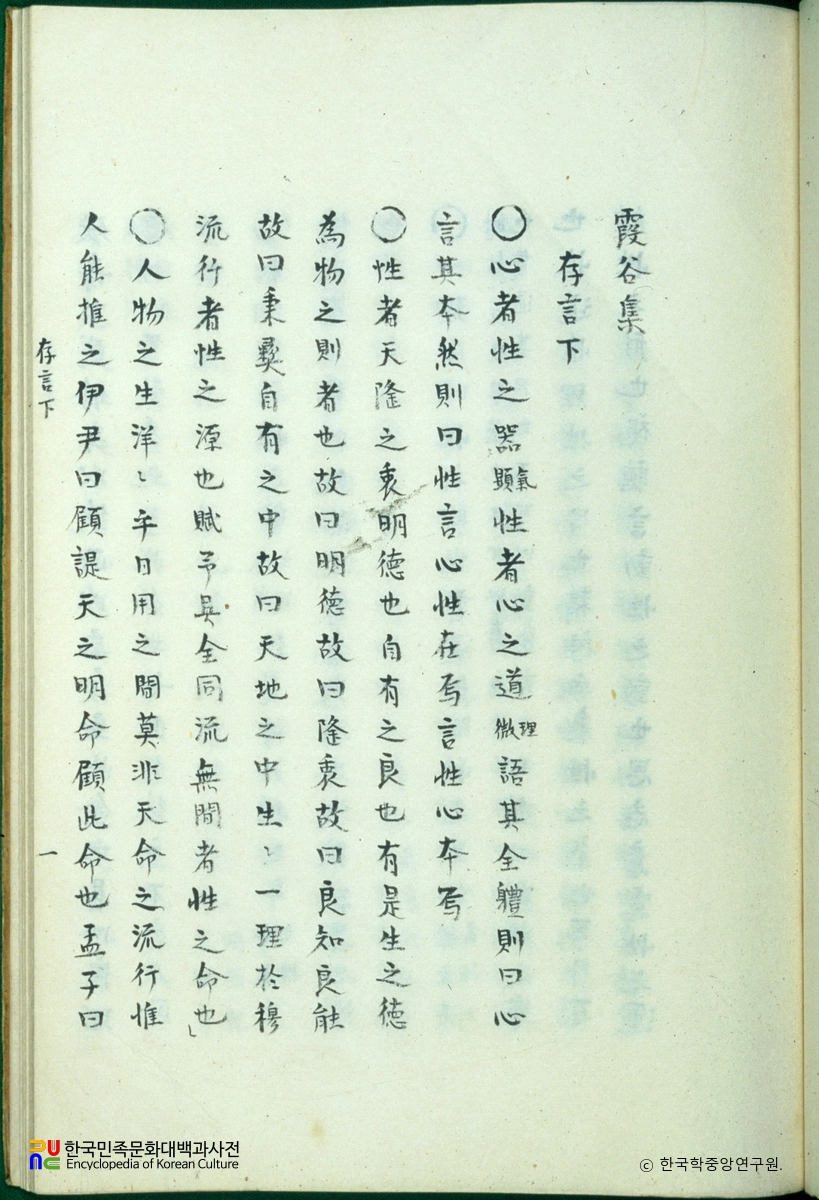 霞谷集
存言下
○心者性之器氣顯性者心之道理微語其全軆則曰心
言其本然則曰性言心性在焉言性心本焉
○性者天降之衷明德也自有之良也有是生之德
為物之則者也故曰明德故曰降衷故曰良知良能
故曰秉彛自有之中故曰天地之中生〻一理於穆
流行者性之源也賦予具全同流無間者性之命也
○人物之生洋〻乎日用之間莫非天命之流行惟
人能推之伊尹曰顧諟天之明命顧此命也孟子曰
存言下
一
한국민족문화대백과사전
Encyclopedia of Korean Culture
ⓒ 한국학중앙연구원.